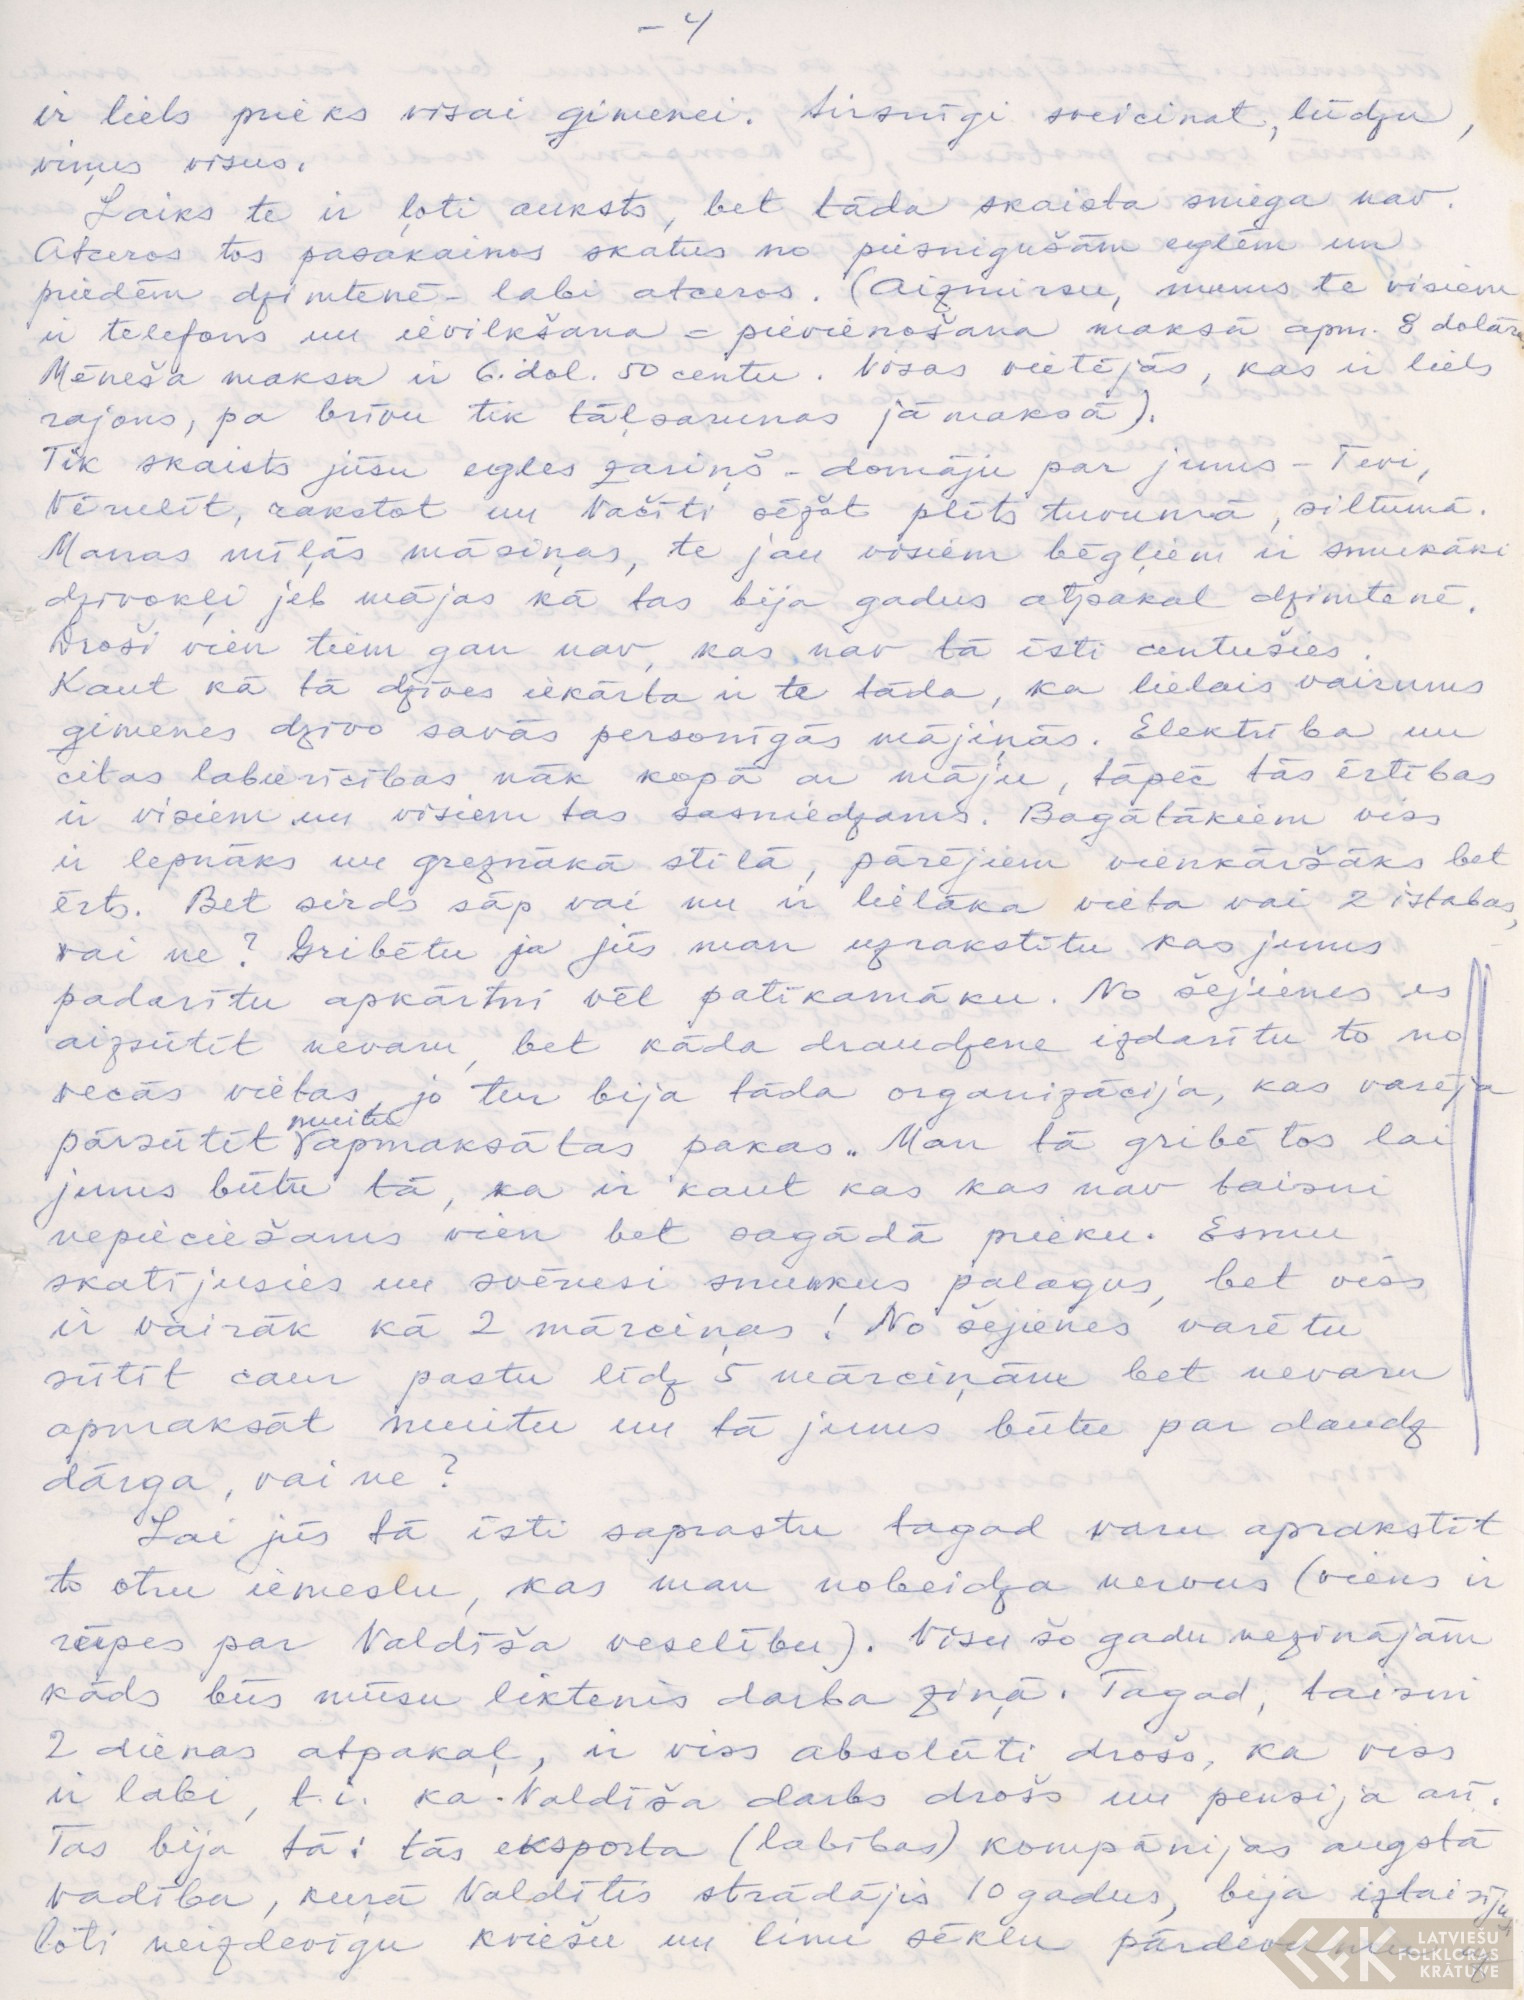 - 4
ir liels prieks visai ģimenei. Sirsnīgi sveicinat, lūdzu,
viņus visus.
Laiks te ir ļoti auksts, bet tāda skaista sniega nav.
Atceros tos pasakainos skatus no piesnigušām eglēm un
priedēm dzimtenē - labi atceros. (Aizmirsu, mums te visiem
ir telefons un ievilkšana = pievienošana maksā apm. 8 dolāru
Mēneša maksa ir 6. dol. 50 centu. Visas vietējās, kas ir liels
rajons, pa brīvu tik tāļsarunas jāmaksā).
Tik skaists jūsu egles zariņš - domāju par jums - Tevi,
Vērulīt, rakstot un Vačīti sēžot plīts tuvumā, siltumā.
Manas mīļās māsiņas, te jau visiem bēgļiem ir smukāki
dzīvokļi jeb mājas kā tas bija gadus atpakaļ dzimtenē.
Droši vien tiem gan nav, kas nav tā īsti centušies.
Kaut kā tā dzīves iekārta ir te tāda, ka lielais vairums
ģimenes dzīvo savās personīgās mājiņās. Elektrība un
citas labierīcības nāk kopā ar māju, tāpēc tās ērtības
ir visiem un visiem tas sasniedzams. Bagātākiem viss
ir lepnāks un greznākā stilā, pārējiem vienkāršāks bet
ērts. Bet sirds sāp vai nu ir lielāka vieta vai 2 istabas,
vai ne? Gribētu ja jūs man uzrakstītu kas jums
padarītu apkārtni vēl patīkamāku. No šejienes es
aizsūtīt nevaru, bet kāda draudzene izdarītu to no
vecās vietas, jo tur bija tāda organizācija, kas varēja
muitu
pārsūtīt apmaksātas pakas. Man tā gribētos lai
jums būtu tā, ka ir kaut kas kas nav taisni
nepieciešams vien bet sagādā prieku. Esmu
skatījusies un svērusi smukus palagus, bet viss
ir vairāk kā 2 mārciņas! No šejienes varētu
sūtīt caur pastu līdz 5 mārciņām bet nevaru
apmaksāt muitu un tā jums būtu par daudz
dārga, vai ne?
Lai jūs tā īsti saprastu tagad varu aprakstīt
to otru iemeslu, kas man nobeidza nervus (viens ir
rūpes par Valdīša veselību). Visu šo gadu nezinājām
kāds būs mūsu liktenis darba ziņā. Tagad, taisni
2 dienas atpakaļ, ir viss absolūti drošs, ka viss
ir labi, t.i. ka Valdīša darbs drošs un pensija arī.
Tas bija tā: tās eksporta (labības) kompānijas augstā
vadība, kurā Valdītis strādājis 10 gadus, bija iztaisīju
ļoti neizdevīgu kviešu un linu sēklu
LATVIEŠU
FOLKLORAS
KRĀTUVE